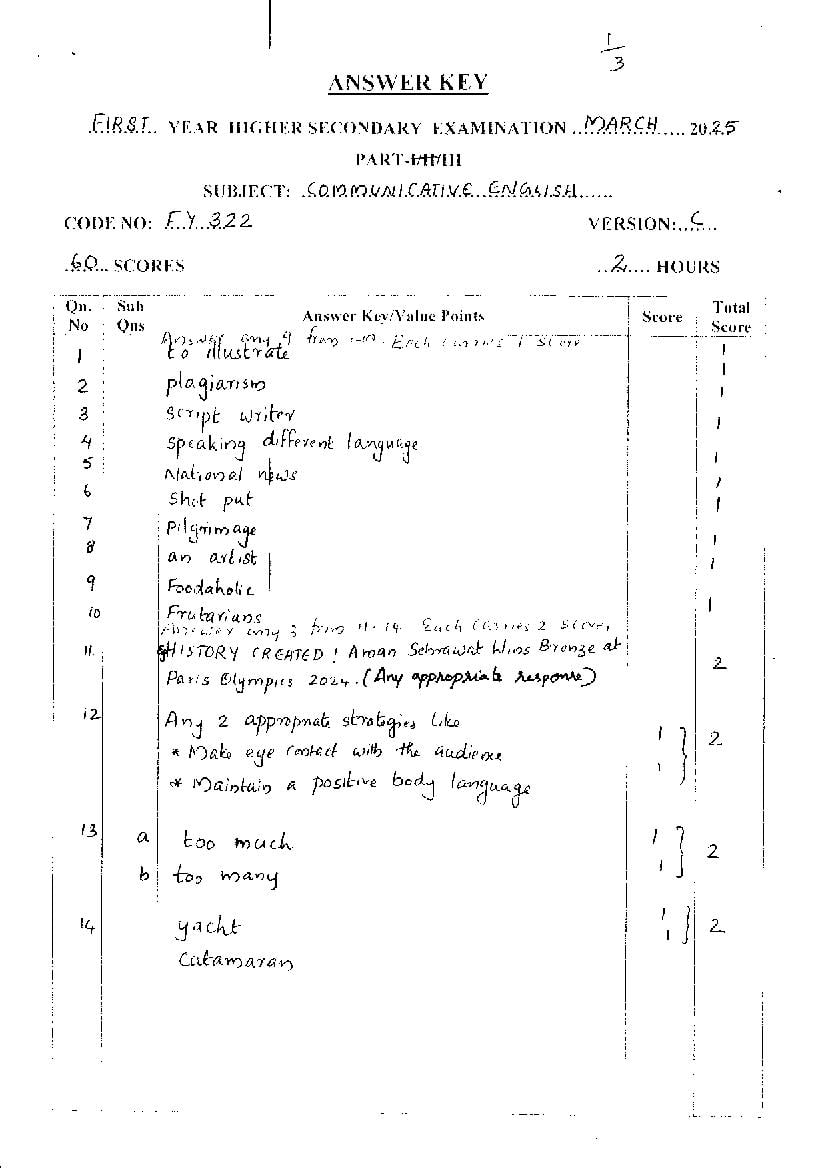 1/3
ANSWER KEY
FIRST YEAR HIGHER SECONDARY EXAMINATION MARCH 2025
PART-I/II/III
SUBJECT: COMMUNICATIVE ENGLISH
CODE NO: FY 322 VERSION: C
60 SCORES 2 HOURS
Qn. No Sub Qns Answer Key/Value Points Score Total Score
Answer any 9 from 1-10. Each carries 1 score
1 to illustrate 1
2 plagiarism 1
3 Script writer 1
4 Speaking different language 1
5 National news 1
6 Shot put 1
7 Pilgrimage 1
8 an artist 1
9 Foodaholic 1
10 Frutarians 1
Answer any 3 from 11-14. Each carries 2 score,
11. HISTORY CREATED! Aman Sehrawat Wins Bronze at
Paris Olympics 2024. (Any appropriate response) 2
12 Any 2 appropriate strategies like
* Make eye contact with the audience 1 2
* Maintain a positive body language 1
13 a too much 1 2
b too many 1
14 yacht 1 2
Catamaran 1